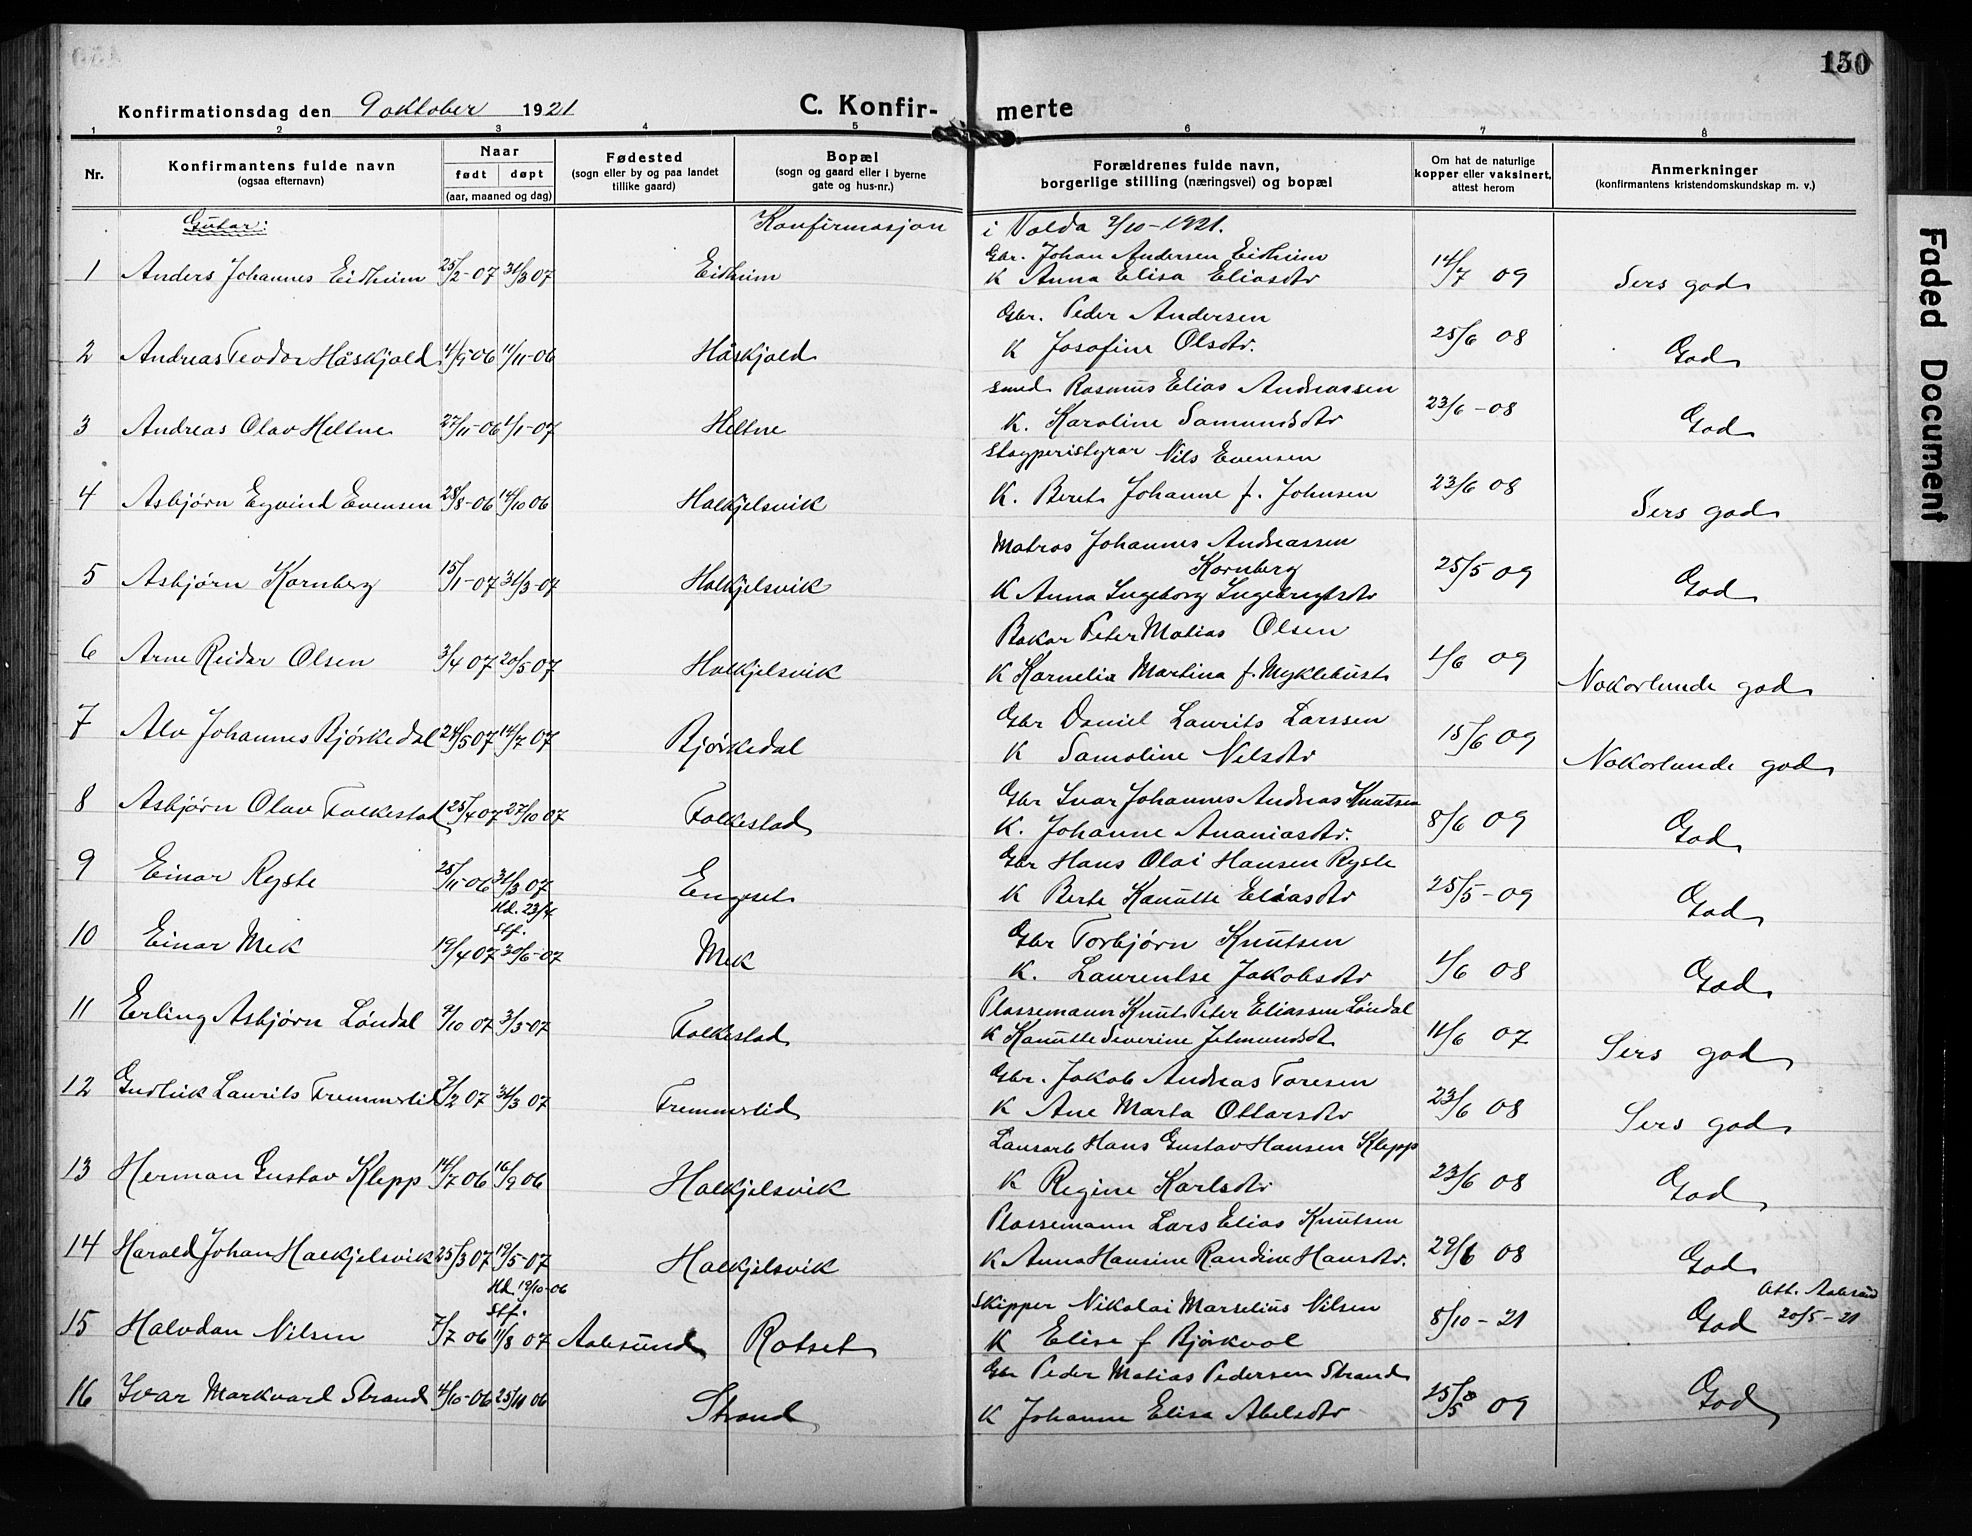 150
Konfirmationsdag den 9 oktober 1921
C. Konfir- merte
1 2 3 4 5 6 7 8
Nr.
Konfirmantens fulde navn
(ogsaa efternavn)
Naar
født døpt
(aar, maaned og dag)
Fødested
(sogn eller by og paa landet
tillike gaard)
Bopæl
(sogn og gaard eller i byerne
gate og hus-nr.)
Forældrenes fulde navn,
borgerlige stilling (næringsvei) og bopæl
Om hat de naturlige
kopper eller vaksinert,
attest herom
Anmerkninger
(konfirmantens kristendomskundskap m. v.)
Gutar: Konfirmasjon i Volda 9/10-1921.
Gbr. Johan Andersen Eidheim
1 Anders Johannes Eidheim 25/2-07 31/3 07 Eidheim K Anna Elisa Eliasdtr 14/7 09 Sers god
Gbr. Peder Andersen
2 Andreas Teodor Håskjold 4/9-06 11/11-06 Håskjold K Josefine Olsdtr. 25/6 08 God
smed Rasmus Elias Andreassen
3 Andreas Olav Heltne 27/11-06 1/1-07 Heltne K. Karoline Samundsdtr 23/6-08 God
Støyperistyrar Nils Evensen
4 Asbjørn Eyvind Evensen 28/8-06 14/10 06 Halkjelsvik K. Beret Johanne f. Johnsen 23/6 08 Sers god
Matros Johannes Andreassen
Kornberg
5 Asbjørn Kornberg 15/1-07 31/3-07 Halkjelsvik K Anna Ingeborg Ingebrigtsdtr 25/5 09 God
Bakar Peter Matias Olsen
6 Arne Reidar Olsen 3/4 07 20/5 07 Halkjelsvik K Kornelia Martina f. Myklebust 1/6 09 Nokorlunde god
Gbr Daniel Laurits Larssen
7 Alv Johannes Bjørkedal 24/5 07 14/7 07 Bjørkedal K Samoline Nilsdtr 15/6 09 Nokorlunde god
Gbr Ivar Johannes Andreas Knutsen
8 Asbjørn Olav Folkestad 25/4 07 27/10 07 Folkestad K. Johanne Ananiasdtr. 8/6 09 God
Gbr Hans Olai Hansen Ryste
9 Einar Ryste 25/11-06 31/3 07 Engeset K Berte Kanutte Eliasdtr 25/5-09 God
Hd. 23/4
stf.
Gbr Torbjørn Knutsen
10 Einar Mek 19/4 07 30/6-07 Mek K. Laurentse Jakobsdtr 1/6 08 God
Plassemann Knut Peter Eliassen Løndal
11 Erling Asbjørn Løndal 9/10 07 3/3-07 Folkestad K Kanutte Severine Jetmundsdt 11/6 07 Sers god
Gbr. Jakob Andreas Toresen
12 Gudleik Laurits Fremmerlid 9/2 07 31/3 07 Fremmerlid K Ane Marta Ottarsdtr 23/6 08 Sers god
Lausarb Hans Gustav Hansen Klepp
13 Herman Gustav Klepp 14/7 06 16/9 06 Halkjelsvik K Regine Karlsdtr 23/6 08 God
Plassemann Lars Elias Knutsen
14 Harald Johan Halkjelsvik 25/3 07 19/5-07 Halkjelsvik K Anna Hansine Randine Hansdtr. 29/6 08 God
Hd. 19/10-06
stf.
Skipper Nikolai Marselius Nilsen
Att. Aalesund
20/5-21
15 Halvdan Nilsen 7/7 06 11/8 07 Aalesund Rotset K Elise f Bjørkvol 8/10-21 God
Gbr Peder Matias Pedersen Strand
16 Ivar Markvard Strand 4/10-06 25/11 06 Strand K Johanne Elisa Abelsdtr 25/5 09 God
Faded Document